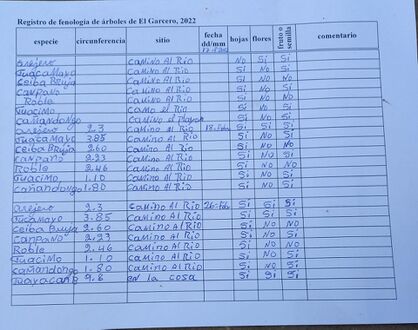 Registro de fenología de árboles de El Garcero, 2022
especie circunferencia sitio fecha dd/mm hojas flores fruto o semilla comentario
orejero camino Al Rio NO SI SI
Guacamayo camino Al Rio SI NO SI
Ceiba Bruja camino Al Rio NO NO
canpano camino Al Rio SI NO SI
Roble camino Al Rio SI NO
Guacimo camo el Rio SI NO SI
camandongo camino el playon SI NO SI
orejero 2.3 camino al Rio 18. SI SI SI
Guacamayo 385 camino Al Rio SI NO SI
Ceiba Bruja 260 camino Al Rio NO NO
canpano 2.23 camino Al Rio SI NO NO
Roble 2.46 camino Al Rio SI NO NO
Guacimo 1.10 camino Al Rio SI NO SI
cañandongo 1.80 camino Al Rio SI NO SI
orejero 2.3 camino Al Rio 26-Feb SI SI SI
Guacamayo 3.85 camino Al Rio SI NO SI
Ceiba Bruja 2.60 camino Al Rio SI NO NO
canpano 2.23 camino Al Rio SI NO NO
Roble 2.46 camino Al Rio SI NO NO
Guacimo 1.10 camino Al Rio SI NO SI
cañandongo 1.80 camino Al Rio SI NO SI
Guayacan 9.8 en la cosa SI SI SI